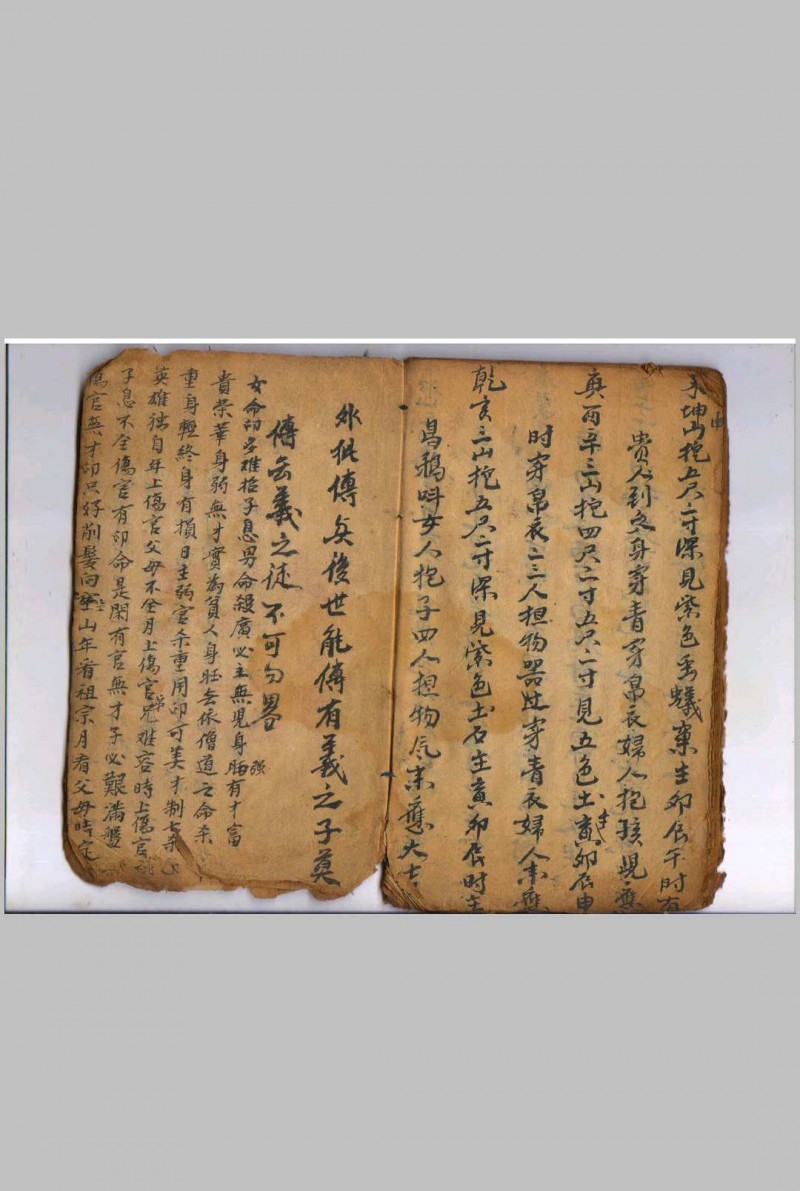 未坤山挖五尺二寸深見紫色虫蟻窠主卯辰午時有
申
貴人到身穿青穿帛衣婦人抱孩児應
庚酉辛三山挖四尺二寸五尺一寸見五色土主寅卯辰申
時穿帛衣二三人担物器穿青衣婦人來應
乾亥三山挖五尺二寸深見紫色土石主寅卯辰時主
烏鴉叫女人抱子四人担物凡來應大吉
外批傳矣後世能傳有義之子莫
傳無義之徒不可勿畧
女命印多难招子息男命殺廣必主無児身强有才富
貴荣華身弱無才實為貧人身旺無依僧道之命杀
重身輕終身有損日主弱官杀重用印可美才制
英雄独自年上傷官父母不全月上傷官兄弟难容時上傷官
子息不全傷官有印命是閑有官無才子必艱滿盤
傷官無才印只好削髮向空山年看祖宗月看父母時定